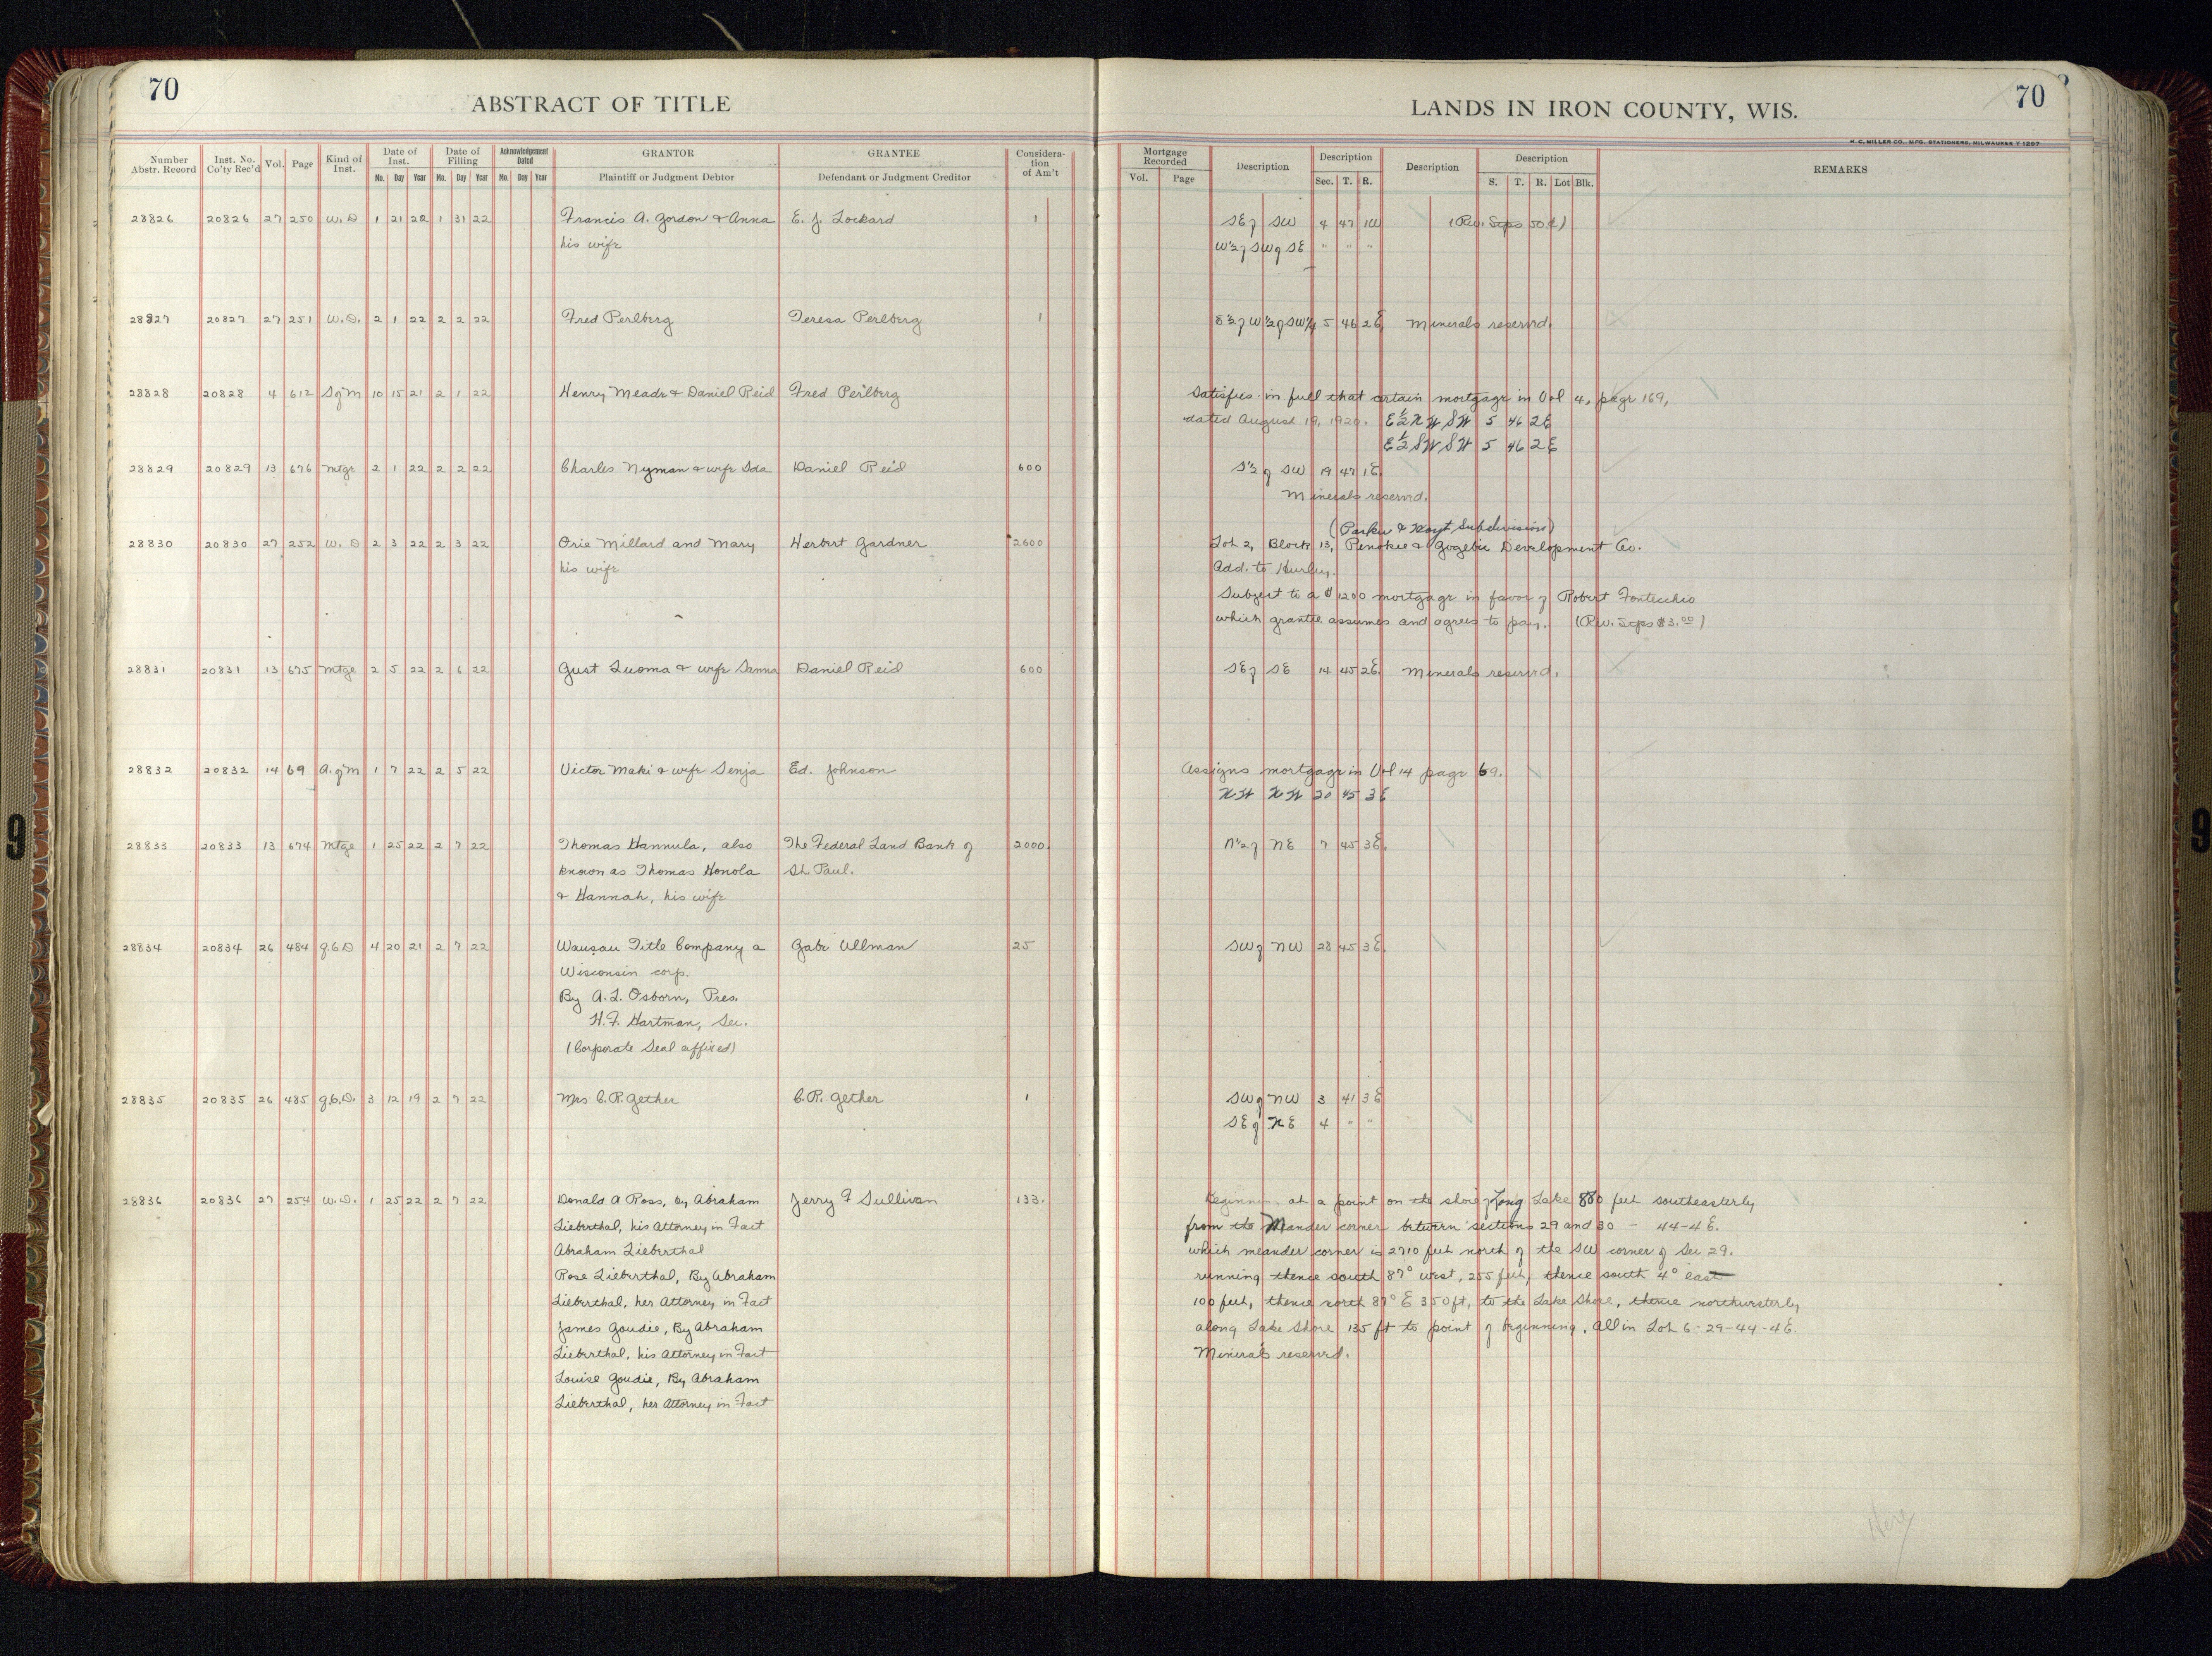 70
ABSTRACT OF TITLE
LANDS IN IRON COUNTY, WIS.
70
H. C. MILLER CO., MFG. STATIONERS, MILWAUKEE Y 1297
Number Abstr. Record | Inst. No. Co'ty Rec'd | Vol. | Page | Kind of Inst. | Date of Inst. Mo. Day Year | Date of Filling Mo. Day Year | Acknowledgement Dated Mo. Day Year | GRANTOR Plaintiff or Judgment Debtor | GRANTEE Defendant or Judgment Creditor | Considera-tion of Am't | Mortgage Recorded Vol. Page | Description | Description Sec. T. R. | Description | Description S. T. R. Lot Blk. | REMARKS
28826 20826 27 250 W. D 1 21 22 1 31 22 Francis A. Gordon & Anna E. J. Lockard 1 SE of SW 4 47 1W (Rev. Stps 50¢)
his wife W½ of SW of SE " " "
28827 20827 27 251 W. D. 2 1 22 2 2 22 Fred Perlberg Teresa Perlberg 1 E½ of W½ of SW¼ 5 46 2E Minerals reserved.
28828 20828 4 612 S of M 10 15 21 2 1 22 Henry Meade & Daniel Reid Fred Perlberg Satisfies in full that certain mortgage in Vol 4, page 169,
dated August 19, 1920. E½ NW SW 5 46 2E
E½ SW SW 5 46 2E
28829 20829 13 676 Mtge 2 1 22 2 2 22 Charles Nyman & wife Ida Daniel Reid 600 S½ of SW 19 47 1E
Minerals reserved.
(Parker & Hoyt Subdivision)
28830 20830 27 252 W. D 2 3 22 2 3 22 Orie Millard and Mary Herbert Gardner 2600 Lot 2, Block 13, Penokee & Gogebic Development Co.
his wife Add. to Hurley.
Subject to a $1200 mortgage in favor of Robert Fontecchio
which grantee assumes and agrees to pay. (Rev. Stps $3.00)
28831 20831 13 675 Mtge 2 5 22 2 6 22 Gust Luoma & wife Sanna Daniel Reid 600 SE of SE 14 45 2E Minerals reserved.
28832 20832 14 69 A. of M 1 7 22 2 5 22 Victor Maki & wife Senja Ed. Johnson Assigns mortgage in Vol 14 page 69.
NW NW 20 45 3E
28833 20833 13 674 Mtge 1 25 22 2 7 22 Thomas Hannula, also The Federal Land Bank of 2000. N½ of NE 7 45 3E.
known as Thomas Honola St. Paul.
& Hannah, his wife
28834 20834 26 484 Q.C.D 4 20 21 2 7 22 Wausau Title Company a Gabe Ullman 25 SW of NW 23 45 3E.
Wisconsin corp.
By A. L. Osborn, Pres.
H. F. Hartman, Sec.
(Corporate Seal affixed)
28835 20835 26 485 Q.C.D. 3 12 19 2 7 22 Mrs C. P. Gether C. P. Gether 1 SW of NW 3 41 3E
SE of NE 4 " "
28836 20836 27 254 W. D. 1 25 22 2 7 22 Donald A Ross, by Abraham Jerry F Sullivan 133. Beginning at a point on the shore of Long Lake 880 feet southeasterly
Lieberthal, his Attorney in Fact from the Meander corner between sections 29 and 30 - 44-4 E.
Abraham Lieberthal which meander corner is 2710 feet north of the SW corner of Sec 29.
Rose Lieberthal, By Abraham running thence south 87° west, 255 feet, thence south 4° east
Lieberthal, her Attorney in Fact 100 feet, thence north 87° E 350 ft, to the Lake Shore, thence northwesterly
James Goudie, By Abraham along Lake Shore 135 ft to point of beginning. All in Lot 6-29-44-4E.
Lieberthal, his Attorney in Fact Minerals reserved.
Louise Goudie, By Abraham
Lieberthal, her Attorney in Fact
Here
9
9